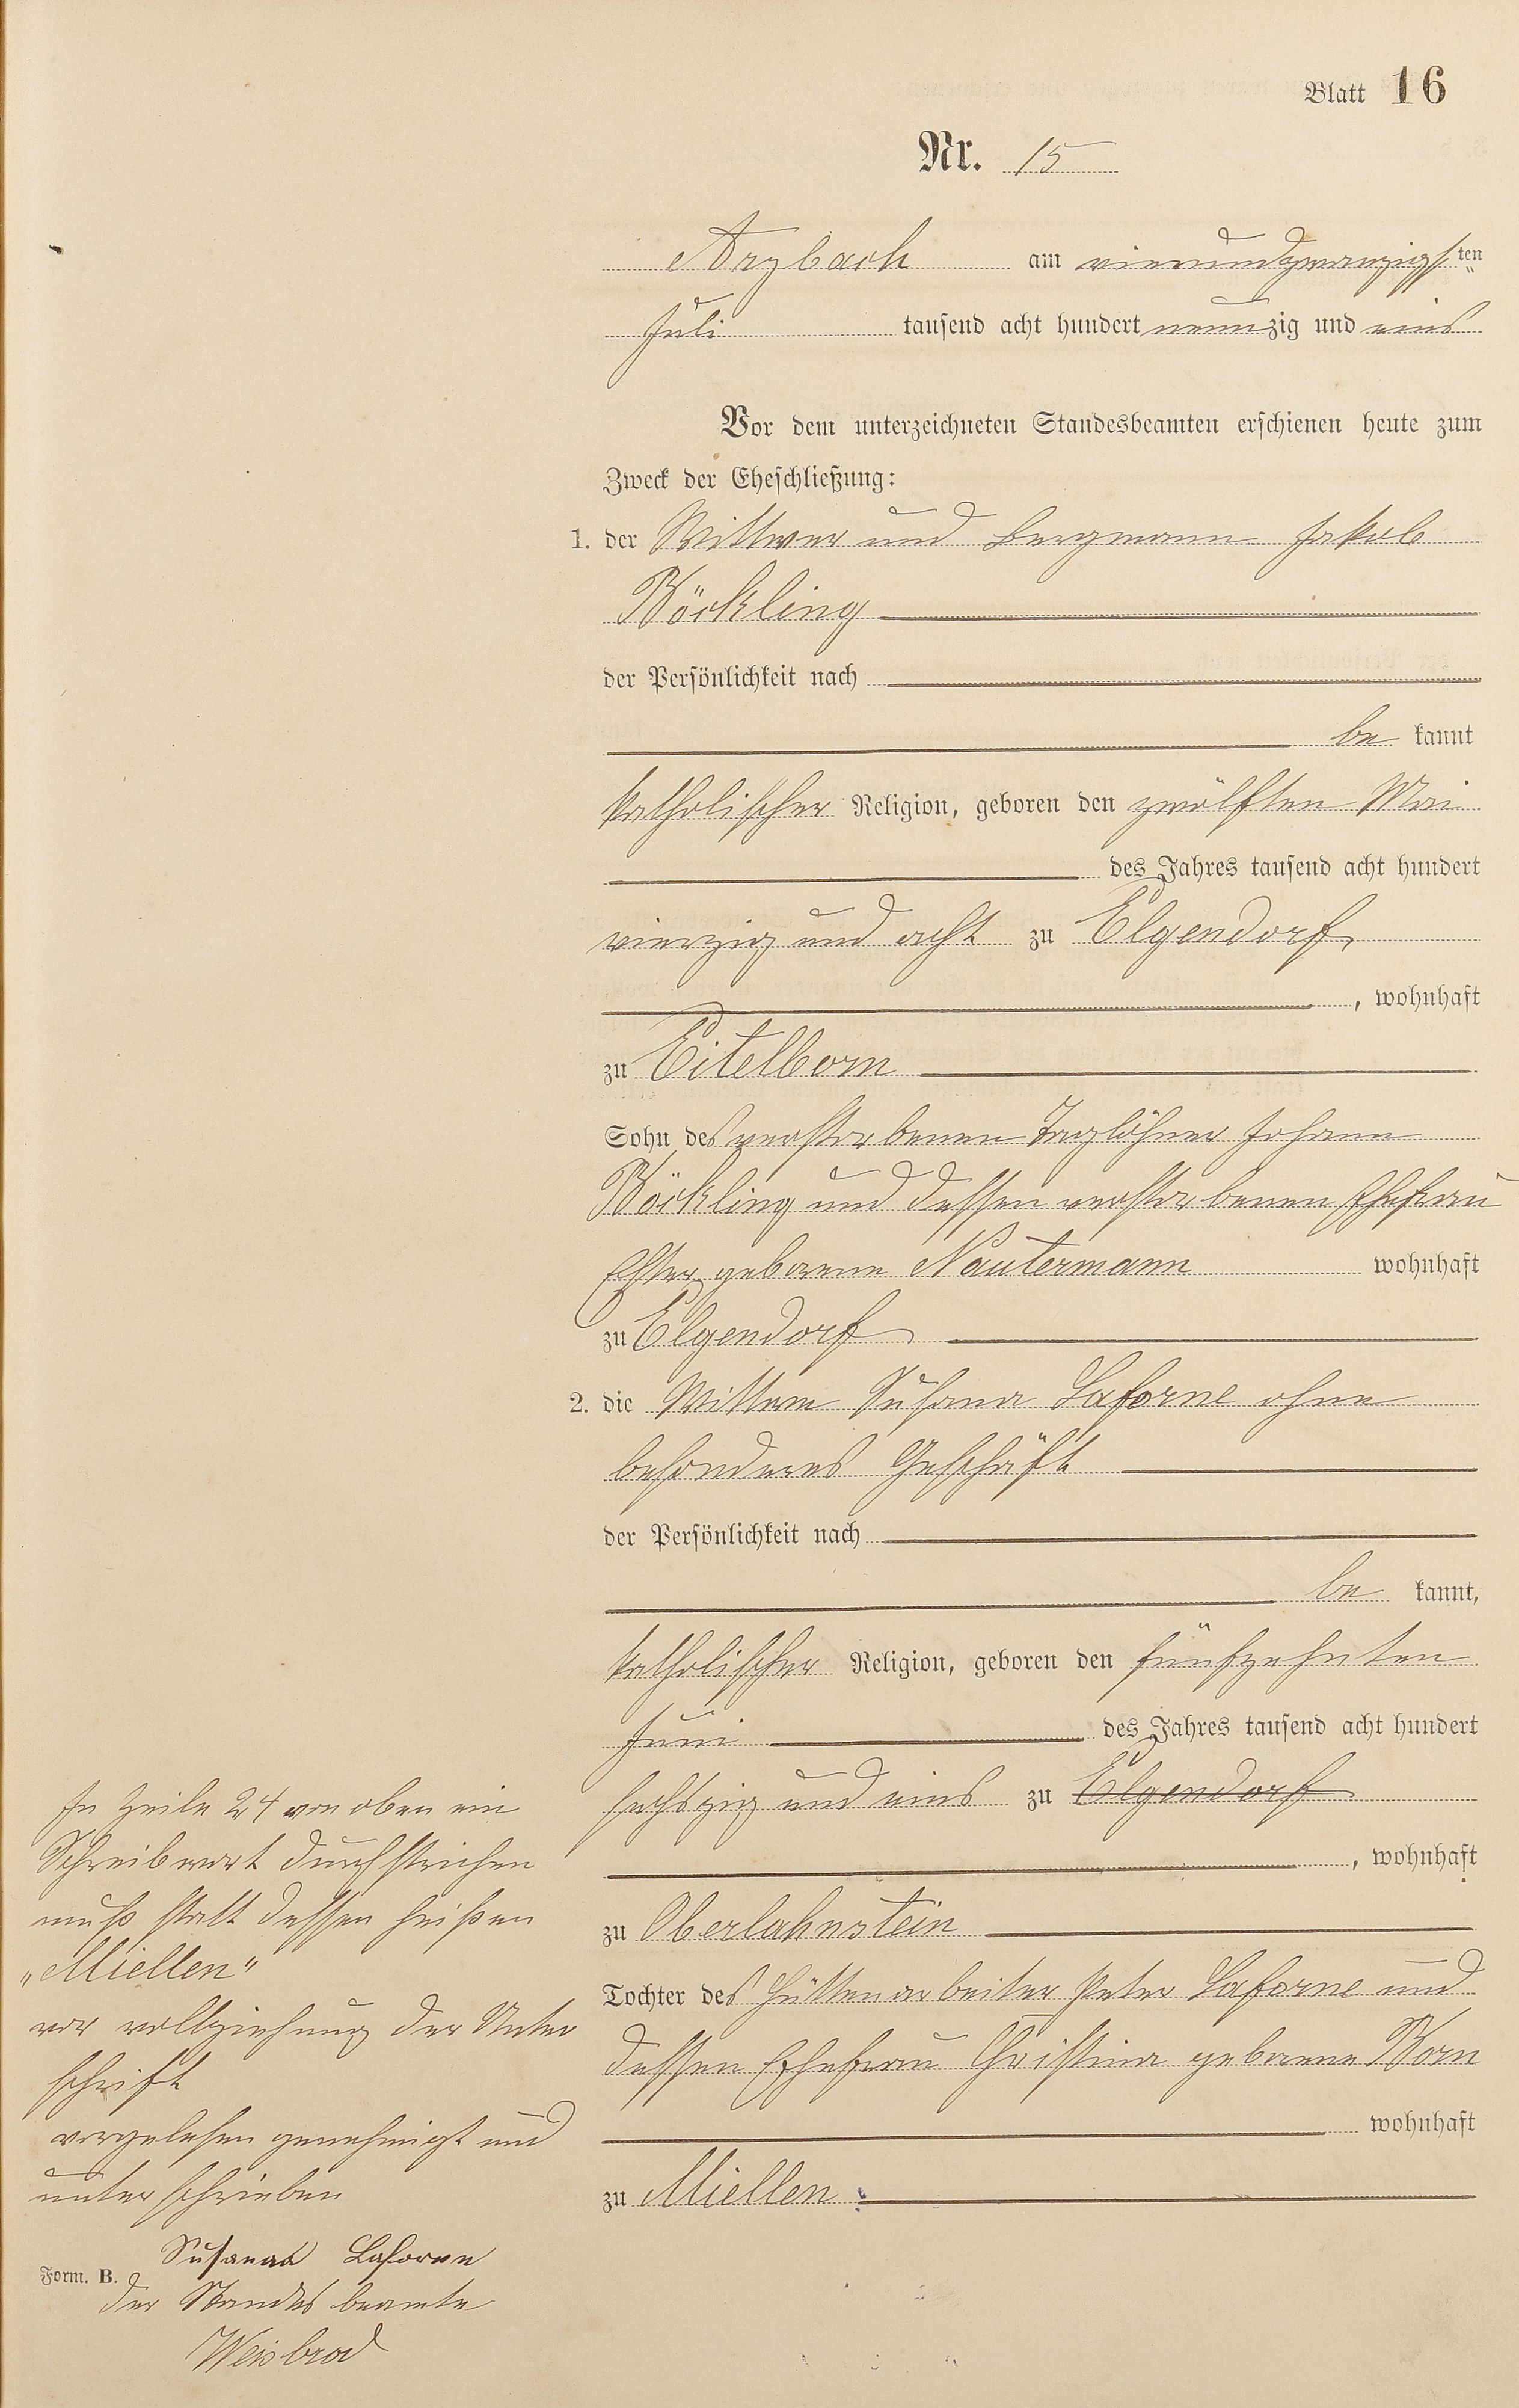 Blatt 16
Nr. 15
Arzbach am vierundzwanzigsten
Juli tausend acht hundert neunzig und eins
Vor dem unterzeichneten Standesbeamten erschienen heute zum
Zweck der Eheschließung:
1. der Wittwer und Bergmann Jakob
Böckling
der Persönlichkeit nach
be kannt
katholischer Religion, geboren den zwölften Mai
des Jahres tausend acht hundert
vierzig und acht zu Elgendorf,
, wohnhaft
zu Eitelborn
Sohn des verstorbenen Taglöhner Johann
Böckling und dessen verstorbenen Ehefrau
Ester geborene Nautermann wohnhaft
zu Elgendorf
2. die Wittwe Susana Laforne ohne
besonderes Geschäft
der Persönlichkeit nach
be kannt,
katholischer Religion, geboren den fünfzehnten
Juni des Jahres tausend acht hundert
sechszig und eins zu Elgendorf
, wohnhaft
zu Oberlahnstein
Tochter des Hüttenarbeiter Peter Laforne und
dessen Ehefrau Christina geborene Born
wohnhaft
zu Miellen.
In Zeile 24 von oben ein
Schreibwort durchstrichen
muß statt dessen heißen
„Miellen"
vor vollziehung der Unter
schrift
vorgelesen genehmigt und
unterschrieben
Susanna Laforne
Form. B.
der Standesbeamte
Weisbrod